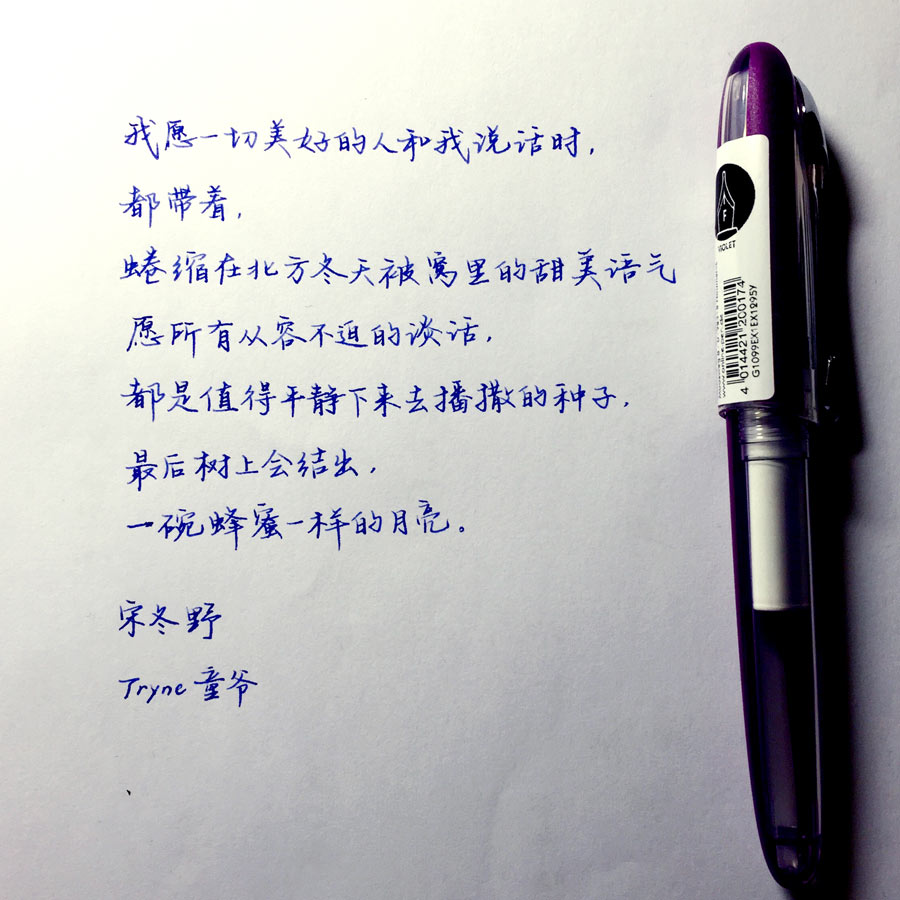 我愿一切美好的人和我说话时，
都带着，
蜷缩在北方冬天被窝里的甜美语气
愿所有从容不迫的谈话，
都是值得平静下来去播撒的种子，
最后树上会结出，
一碗蜂蜜一样的月亮。
宋冬野
Tryne 童爷
F
4 014421 200174
G1099EX1EX1Q95Y